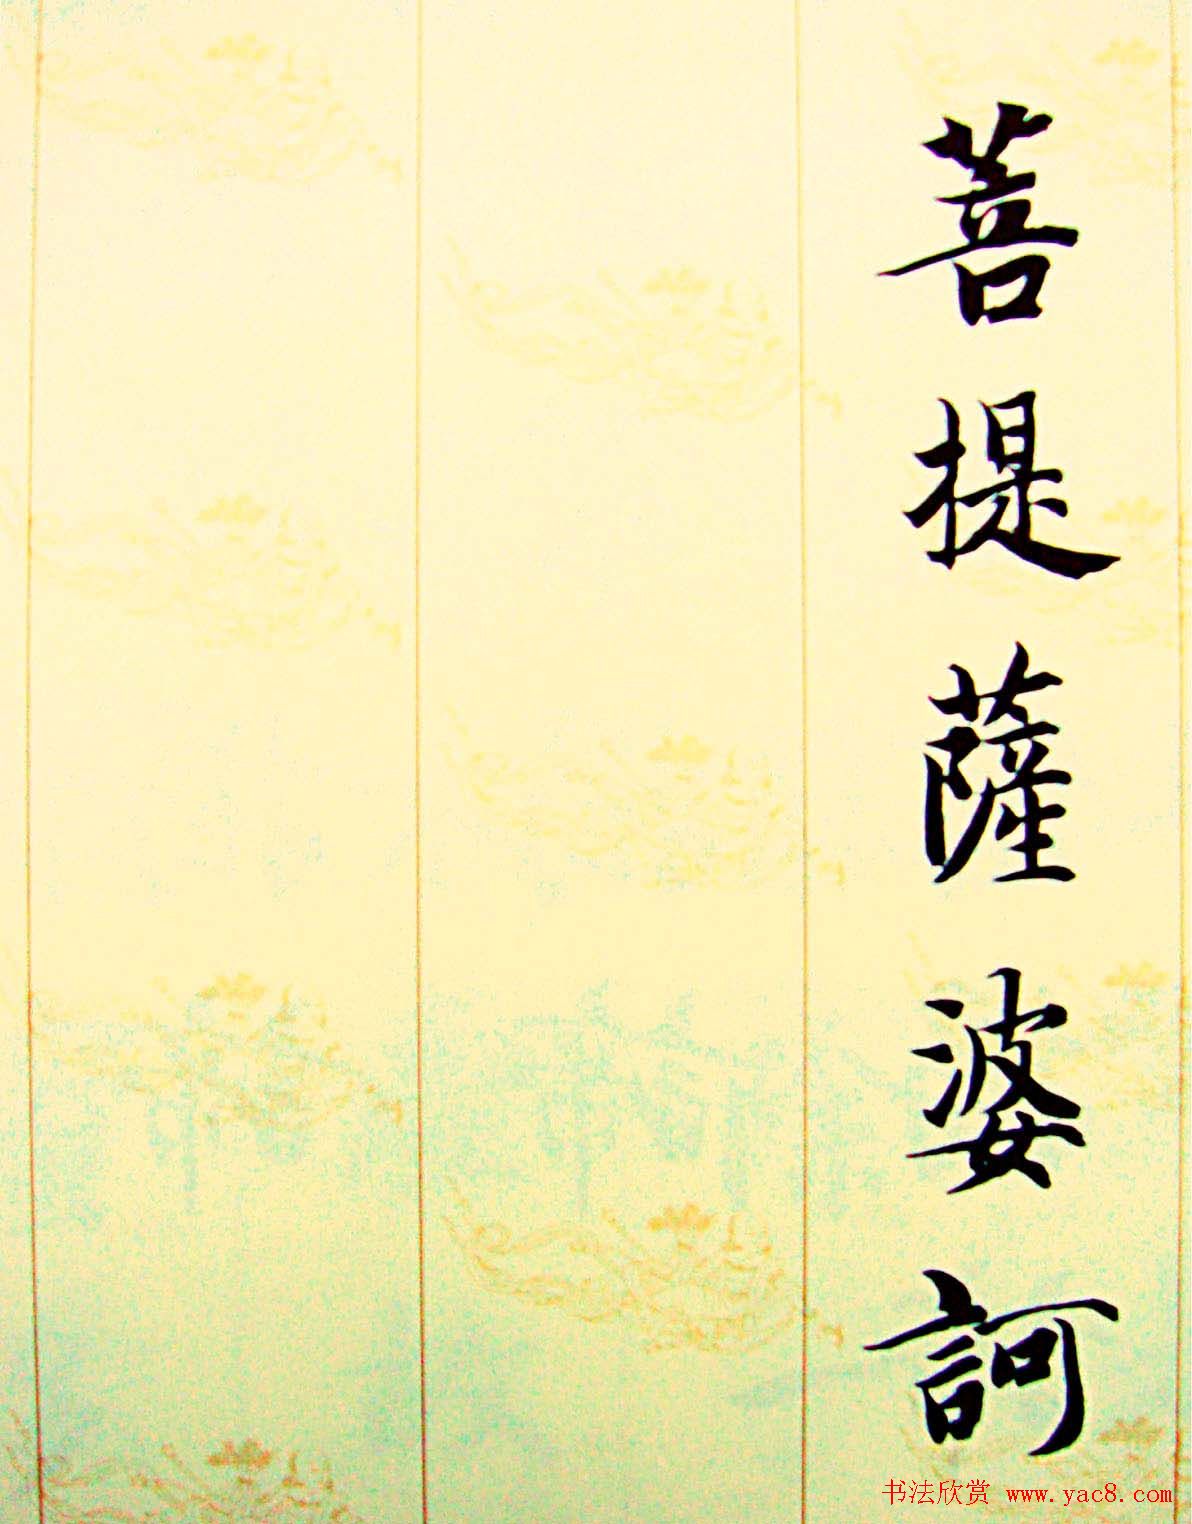 菩提薩婆訶
书法欣赏 www.yac8.com